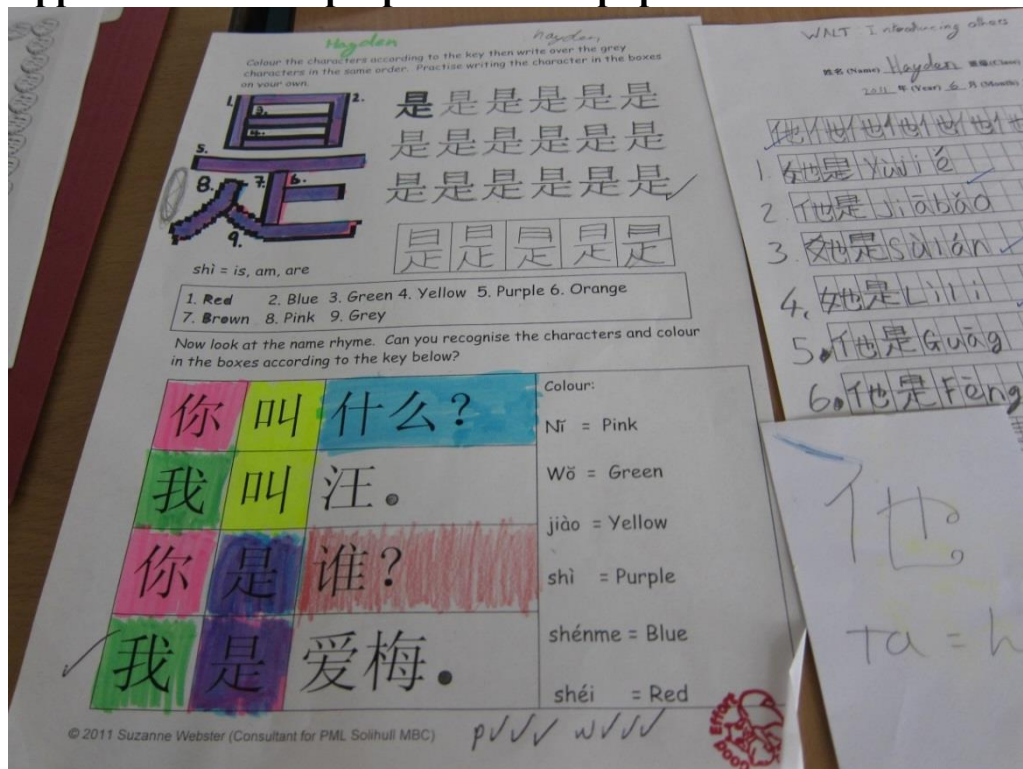 Hayden
hayden,
Colour the characters according to the key then write over the grey
characters in the same order. Practise writing the character in the boxes
on your own.
1. 2.
3.
4.
5.
8. 7. 6.
9.
是是是是是是
是是是是是是
是是是是是是
是是是是是
shì = is, am, are
1. Red 2. Blue 3. Green 4. Yellow 5. Purple 6. Orange
7. Brown 8. Pink 9. Grey
Now look at the name rhyme. Can you recognise the characters and colour
in the boxes according to the key below?
你叫什么？
我叫汪。
你是谁？
我是爱梅。
Colour:
Nǐ = Pink
Wǒ = Green
jiào = Yellow
shì = Purple
shénme = Blue
shéi = Red
© 2011 Suzanne Webster (Consultant for PML Solihull MBC)
p✓✓✓ w✓✓✓
Effort
Good
WALT Introducing others
姓名 (Name) Hayden (Class)
2011 年 (Year) 6 月 (Month)
他他他他他他他
1. 她是Yùjié
2. 他是Jiābǎo
3. 她是Sùián
4. 她是Lìlì
5. 他是Guāg
6. 他是Fēng
他。
Ta = h